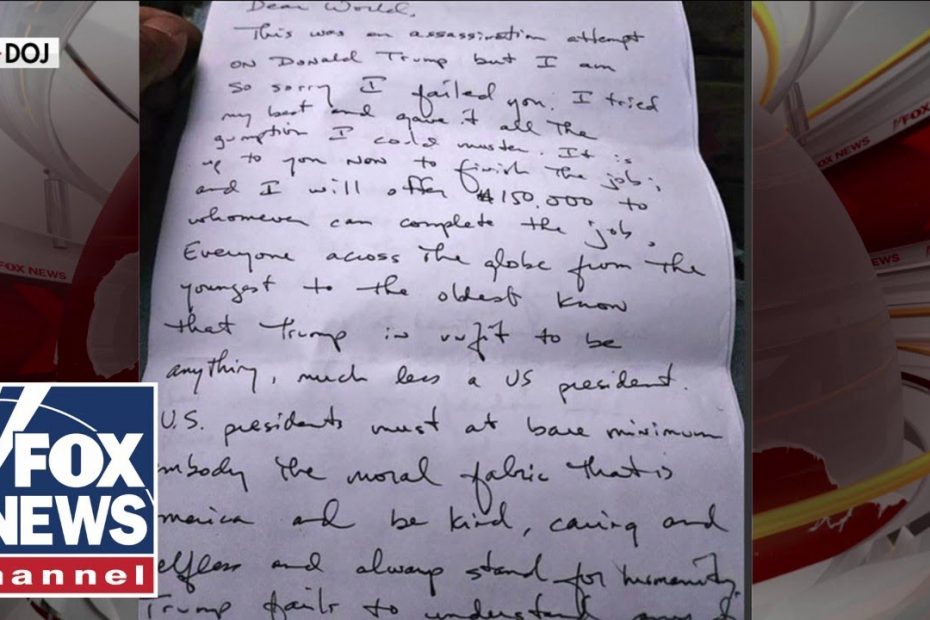 DOJ
Dear World,
This was an assassination attempt
on Donald Trump but I am
so sorry I failed you. I tried
my best and gave it all the
gumption I could muster. It is
up to you now to finish the job;
and I will offer $150,000 to
whomever can complete the job.
Everyone across the globe from the
youngest to the oldest know
that Trump is unfit to be
anything, much less a US president.
U.S. presidents must at bare minimum
mbody the moral fabric that is
merica and be kind, caring and
elfless and always stand for humanity
Trump fails to understand any
FOX
NEWS
hannel
FOX NEWS
FOX NEWS
FOX NEWS
FOX